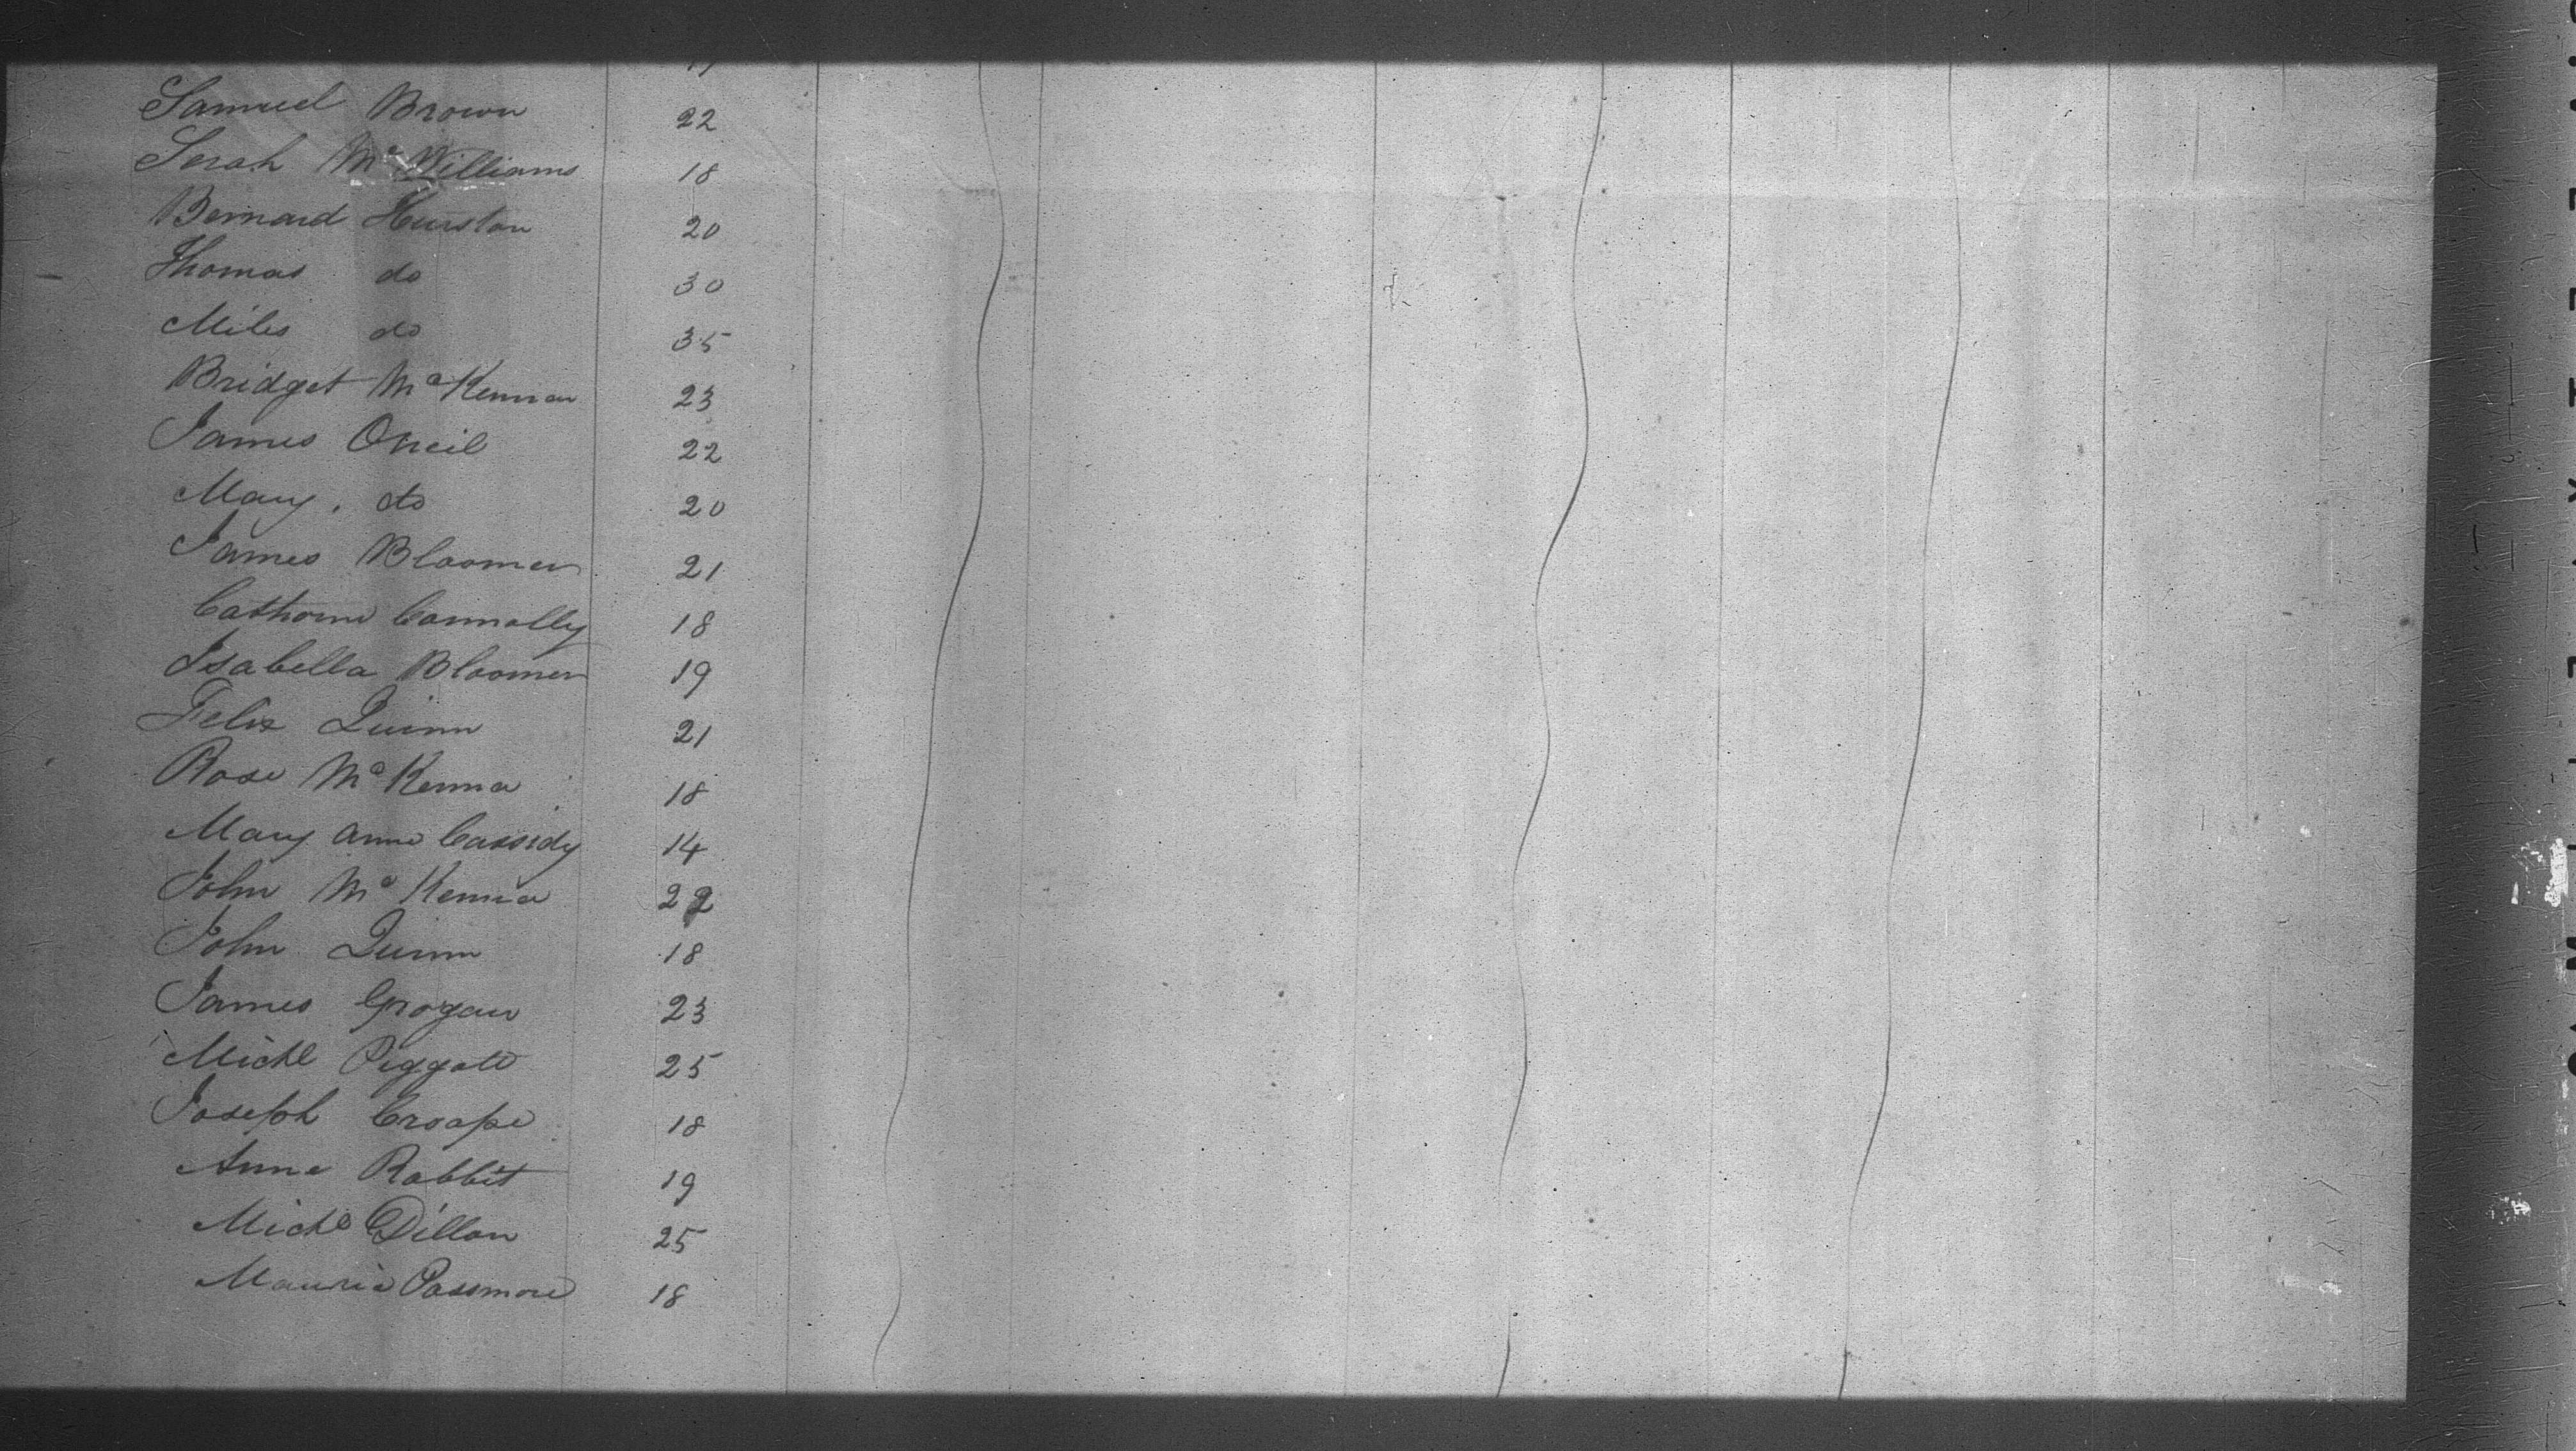 Samuel Brown 22
Serah Mc Williams 18
Bernard Hurston 20
Thomas do 30
Miles do 35
Bridget Mc Kenna 23
James Oneil 22
Mary. do 20
James Bloomer 21
Catharine Connolly 18
Isabella Bloomer 19
Felix Quinn 21
Rose Mc Kenna 18
Mary Anne Cassidy 14
John Mc Kenna 22
John Quinn 18
James Grogan 23
Michl Piggott 25
Joseph 18
Anne Rabbit 19
Michl Dillon 25
Passmore 18